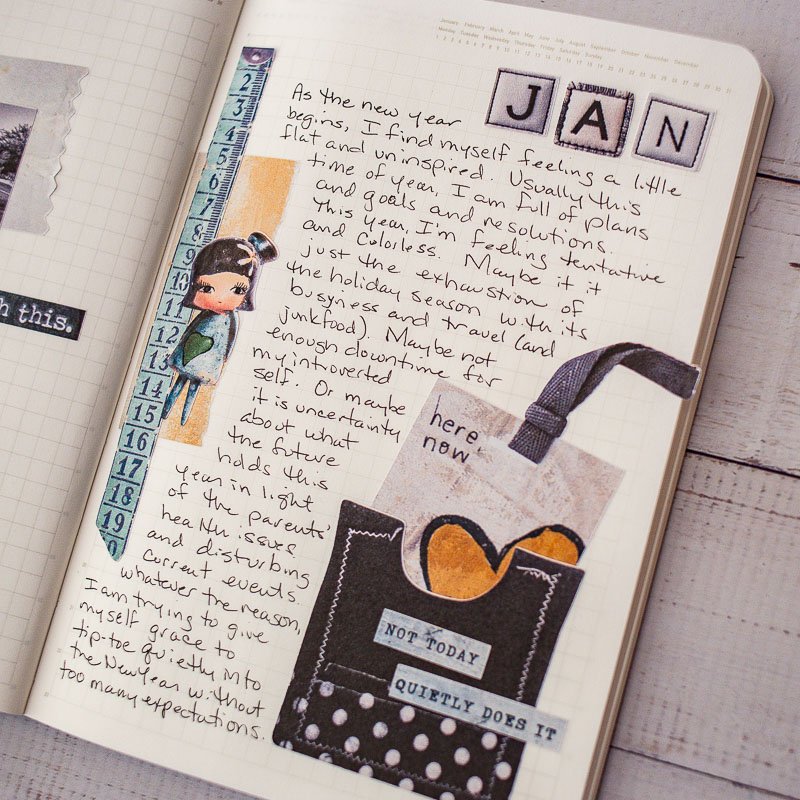 January February March April May June July August September October November December
Monday Tuesday Wednesday Thursday Friday Saturday Sunday
1 2 3 4 5 6 7 8 9 10 11 12 13 14 15 16 17 18 19 20 21 22 23 24 25 26 27 28 29 30 31
JAN
As the new year
begins, I find myself feeling a little
flat and uninspired. Usually this
time of year, I am full of plans
and goals and resolutions.
This year, I'm feeling tentative
and colorless. Maybe it it
just the exhaustion of
the holiday season with its
busyness and travel (and
junkfood). Maybe not
enough downtime for
my introverted
self. Or maybe
it is uncertainty
about what
the future
holds this
year in light
of the parents'
health issues
and disturbing
current events.
whatever the reason,
I am trying to give
myself grace to
tip-toe quietly into
the New Year without
too many expectations.
2
3
4
5
6
7
8
9
10
11
12
13
14
15
16
17
18
19
h this.
here
now
NOT TODAY
QUIETLY DOES IT